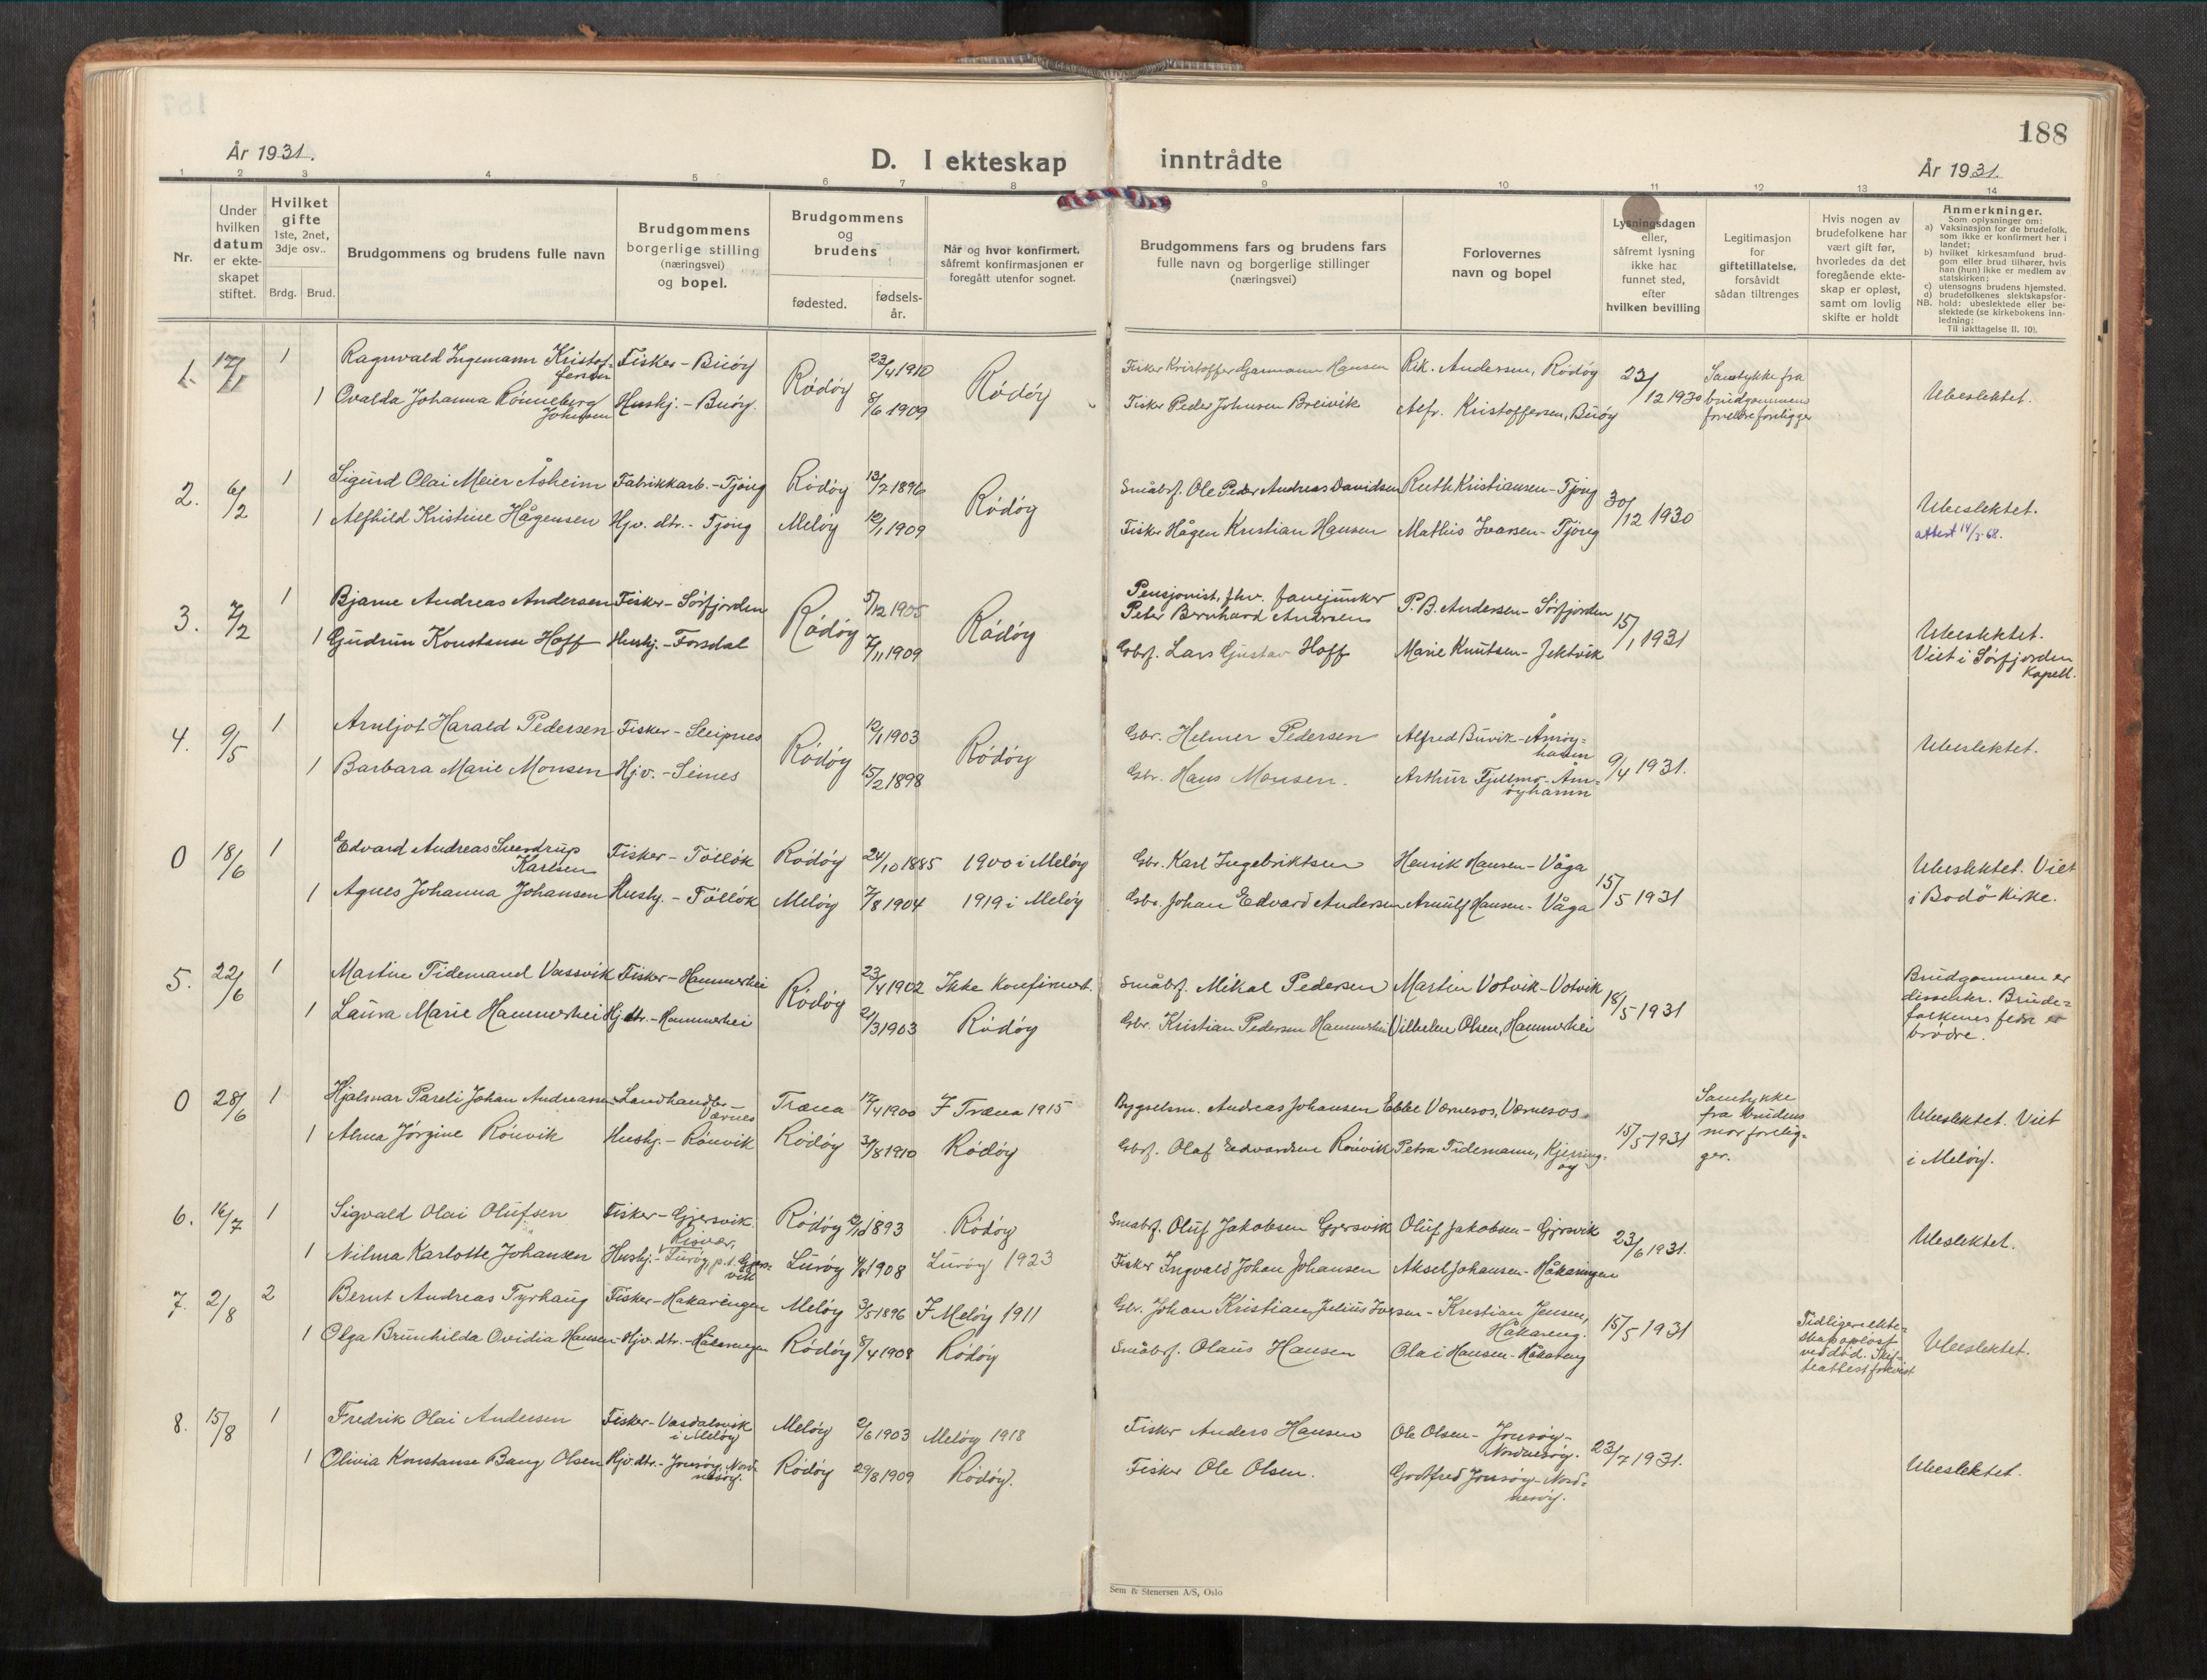 188
År 1931.
D. I ekteskap inntrådte
År 1931.
1 2 3 4 5 6 7 8 9 10 11 12 13 14
Nr.
Under hvilken datum er ekte- skapet stiftet.
Hvilket gifte 1ste, 2net, 3dje osv..
Brdg. Brud.
Brudgommens og brudens fulle navn
Brudgommens borgerlige stilling (næringsvei) og bopel.
Brudgommens og brudens
fødested.
fødsels- år.
Når og hvor konfirmert, såfremt konfirmasjonen er foregått utenfor sognet.
Brudgommens fars og brudens fars fulle navn og borgerlige stillinger (næringsvei)
Forlovernes navn og bopel
Lysningsdagen eller, såfremt lysning ikke har funnet sted, efter hvilken bevilling
Legitimasjon for giftetillatelse, forsåvidt sådan tiltrenges
Hvis nogen av brudefolkene har vært gift før, hvorledes da det foregående ekte- skap er opløst, samt om lovlig skifte er holdt
Anmerkninger.
Som oplysninger om:
a) Vaksinasjon for de brudefolk, som ikke er konfirmert her i landet;
b) hvilket kirkesamfund brud- gom eller brud tilhører, hvis han (hun) ikke er medlem av statskirken;
c) utensogns brudens hjemsted.
d) brudefolkenes slektskapsfor-
NB. hold: ubeslektede eller be- slektede (se kirkebokens inn- ledning:
Til iakttagelse II. 10).
1. 17/1 1 Ragnvald Ingemann Kristof- fersen Fisker - Buøy Rödöy 23/4 1910 Rödöy Fisker Kristoffer Garmann Hansen Rik. Andersen, Rödöy 23/12 1930 Samtykke fra brudgommens foreldre foreligger Ubeslektet.
1 Ovalda Johanna Rönneberg Johnsen Hushj. - Buöy. 8/6 1909 Fisker Peder Johnsen Breivik Alfr. Kristoffersen, Buöy
2. 6/2 1 Sigurd Olai Meier Åsheim Fabrikkarb. - Tjong Rödöy 13/2 1896 Rödöy Småbrf. Ole Peder Andreas Davidsen Ruth Kristiansen - Tjong 30/12 1930 Ubeslektet.
1 Alfhild Kristine Hågensen Hjv. dtr. - Tjong Meløy 12/1 1909 Fisker Hågen Kristian Hansen Mathis Ivarsen - Tjöng attest 14/3-68.
3. 7/2 1 Bjarne Andreas Andersen Fisker - Sörfjorden Rödöy 5/12 1905 Rödöy Pensjonist, fhv. fanejunker Peter Bernhard Andersen P. B. Andersen - Sörfjorden 15/1 1931 Ubeslektet. Viet i Sörfjorden Kapell.
1 Gudrun Konstanse Hoff Hushj. - Forsdal 7/11 1909 Gbrf. Lars Gustav Hoff Marie Knutsen - Jektvik
4. 9/5 1 Arnljot Harald Pedersen Fisker - Sleipnes Rödöy 12/1 1903 Rödöy Gbr. Helmer Pedersen Alfred Buvik - Åmöy= hamn 9/4 1931. Ubeslektet.
1 Barbara Marie Monsen Hjv. - Seines 15/2 1898 Gbr. Hans Monsen. Arthur Fjellmo - Åm= öyhamn
0 18/6 1 Edvard Andreas Sverdrup Karlsen Fisker - Töllök Rödöy 24/10 1885 1900 i Meløy Gbr. Karl Ingebriktsen Henrik Hansen - Våga 15/5 1931 Ubeslektet. Viet i Bodö kirke.
1 Agnes Johanna Johansen Hushj. - Töllök Meløy 7/8 1904 1919 i Meløy Gbr. Johan Edvard Andersen Arnulf Hansen - Våga
5. 22/6 1 Martin Tidemand Vassvik Fisker - Hammerhei Rödöy 23/4 1902 Ikke konfirmert. Småbrf. Mikal Pedersen Martin Votvik - Votvik 18/5 1931 Brudgommen er dissenter. Brude= folkenes fedre er brödre.
1 Laura Marie Hammerhei Hj.dtr. - Hammerhei 21/3 1903 Rödöy Gbr. Kristian Pedersen Hammerhei Vilhelm Olsen, Hammerhei
0 28/6 1 Hjalmar Pareli Johan Andreassen Landhandler Værnes Træna 17/4 1900 I Træna 1915 Bygselsm. Andreas Johansen Ebbe Værnesos, Værnesos 15/5 1931 Samtykke fra brudens mor forelig= ger. Ubeslektet. Viet i Meløy.
1 Alma Jörgine Rönvik Hushj. - Rönvik Rödöy 31/8 1910 Rödöy Gbrf. Olaf Edvardsen Rönvik Petra Tidemann, Kjerring- öy
6. 16/7 1 Sigvald Olai Olufsen Fisker - Gjersvik. Rödöy 1893 Rödöy Småbrf. Oluf Jakobsen Gjersvik Oluf Jakobsen - Gjersvik 23/6 1931. Ubeslektet.
1 Nilma Karlotte Johansen Hushj. - Kisvær, Luröy, p.t. Gjers- vik Luröy 4/8 1908 Luröy 1923 Fisker Ingvald Johan Johansen Aksel Johansen - Håkaringen
7. 2/8 2 Bernt Andreas Tyrhaug Fisker - Hakaringen Meløy 3/5 1896 I Meløy 1911 Gbr. Johan Kristian Julius Iversen - Kristian Jensen, Håkareng. 15/5 1931 Tidligere ekte= skap opløst ved död. Skif- teattest forevist Ubeslektet.
1 Olga Brunhilda Ovidia Hansen - Hjv. dtr. - Håkaringen Rödöy 8/4 1908 Rödöy Småbrf. Olaus Hansen Olai Hansen - Håkareng
8. 15/8 1 Fredrik Olai Andersen Fisker - Vasdalsvik i Meløy Meløy 2/6 1903 Meløy 1918 Fisker Anders Hansen Ole Olsen - Jonsöy - Nordnesöy. 23/7 1931. Ubeslektet.
1 Olivia Konstanse Bang Olsen Hjv.dtr. - Jonsöy, Nord- nesöy. Rödöy 29/8 1909 Rödöy. Fisker Ole Olsen. Godtfred Jonsöy - Nord= nesöy.
Sem & Stenersen A/S, Oslo